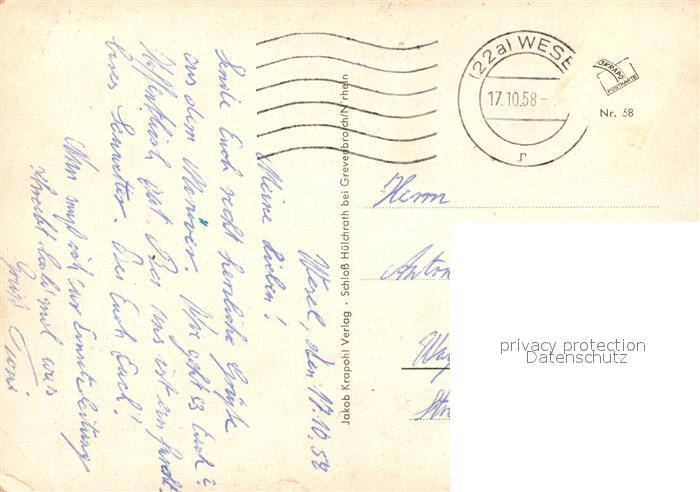 Wesel, den 17.10.58
Meine Lieben!
Sende Euch recht herzliche Grüße
aus dem Manöver. Wie geht es Euch?
Hoffentlich gut. Bei uns ist ein furcht-
bares Sauwetter. Bei Euch auch?
Nun muß ich zur Einsatzleitung
Schreibt bald mal was
Gruß Toni
Jakob Krapohl Verlag · Schloß Hülchrath bei Grevenbroich/N'rhein
(22a) WESE
17.10.58
r
KRAPO
POSTKARTE
Nr. 58
Herrn
Anton
Wag
Str
privacy protection
Datenschutz